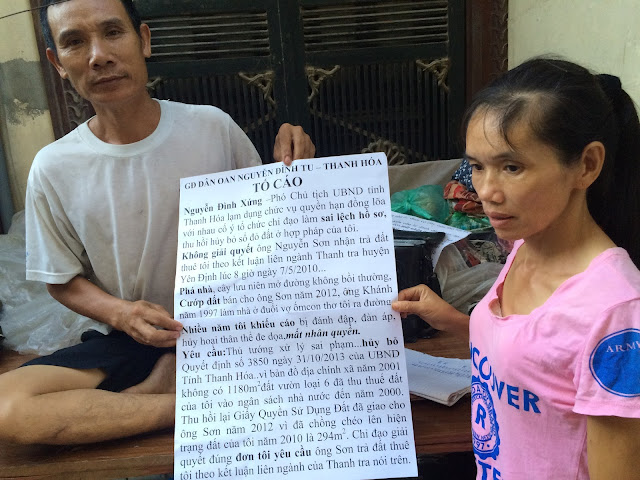 GĐ DÂN OAN NGUYỄN ĐÌNH TU – THANH HÓA
TỐ CÁO
Nguyễn Đình Xứng –Phó Chủ tịch UBND tỉnh
Thanh Hóa lạm dụng chức vụ quyền hạn đồng lõa
với nhau cố ý tổ chức chỉ đạo làm sai lệch hồ sơ,
thu hồi hủy bỏ sổ đỏ đất ở hợp pháp của tôi.
Không giải quyết ông Nguyễn Sơn nhận trả đất
thuê tôi theo kết luận liên ngành Thanh tra huyện
Yên Định lúc 8 giờ ngày 7/5/2010...
Phá nhà, cây lưu niên mở đường không bồi thường,
Cướp đất bán cho ông Sơn năm 2012, ông Khánh
năm 1997 làm nhà ở đuổi vợ ốmcon thơ tôi ra đường
Nhiều năm tôi khiếu cáo bị đánh đập, đàn áp,
hủy hoại thân thể đe dọa,mất nhân quyền.
Yêu cầu:Thủ tướng xử lý sai phạm...hủy bỏ
Quyết định số 3850 ngày 31/10/2013 của UBND
Tỉnh Thanh Hóa..vì bản đồ địa chính xã năm 2001
không có 1180m²đất vườn loại 6 đã thu thuế đất
của tôi vào ngân sách nhà nước đến năm 2000.
Thu hồi lại Giấy Quyền Sử Dụng Đất đã giao cho
ông Sơn năm 2012 vì đã chồng chéo lên hiện
trạng đất của tôi năm 2010 là 294m². Chỉ đạo giải
quyết đúng đơn tôi yêu cầu ông Sơn trả đất thuê
tôi theo kết luận liên ngành của Thanh tra nói trên.
ARMY
R
1997